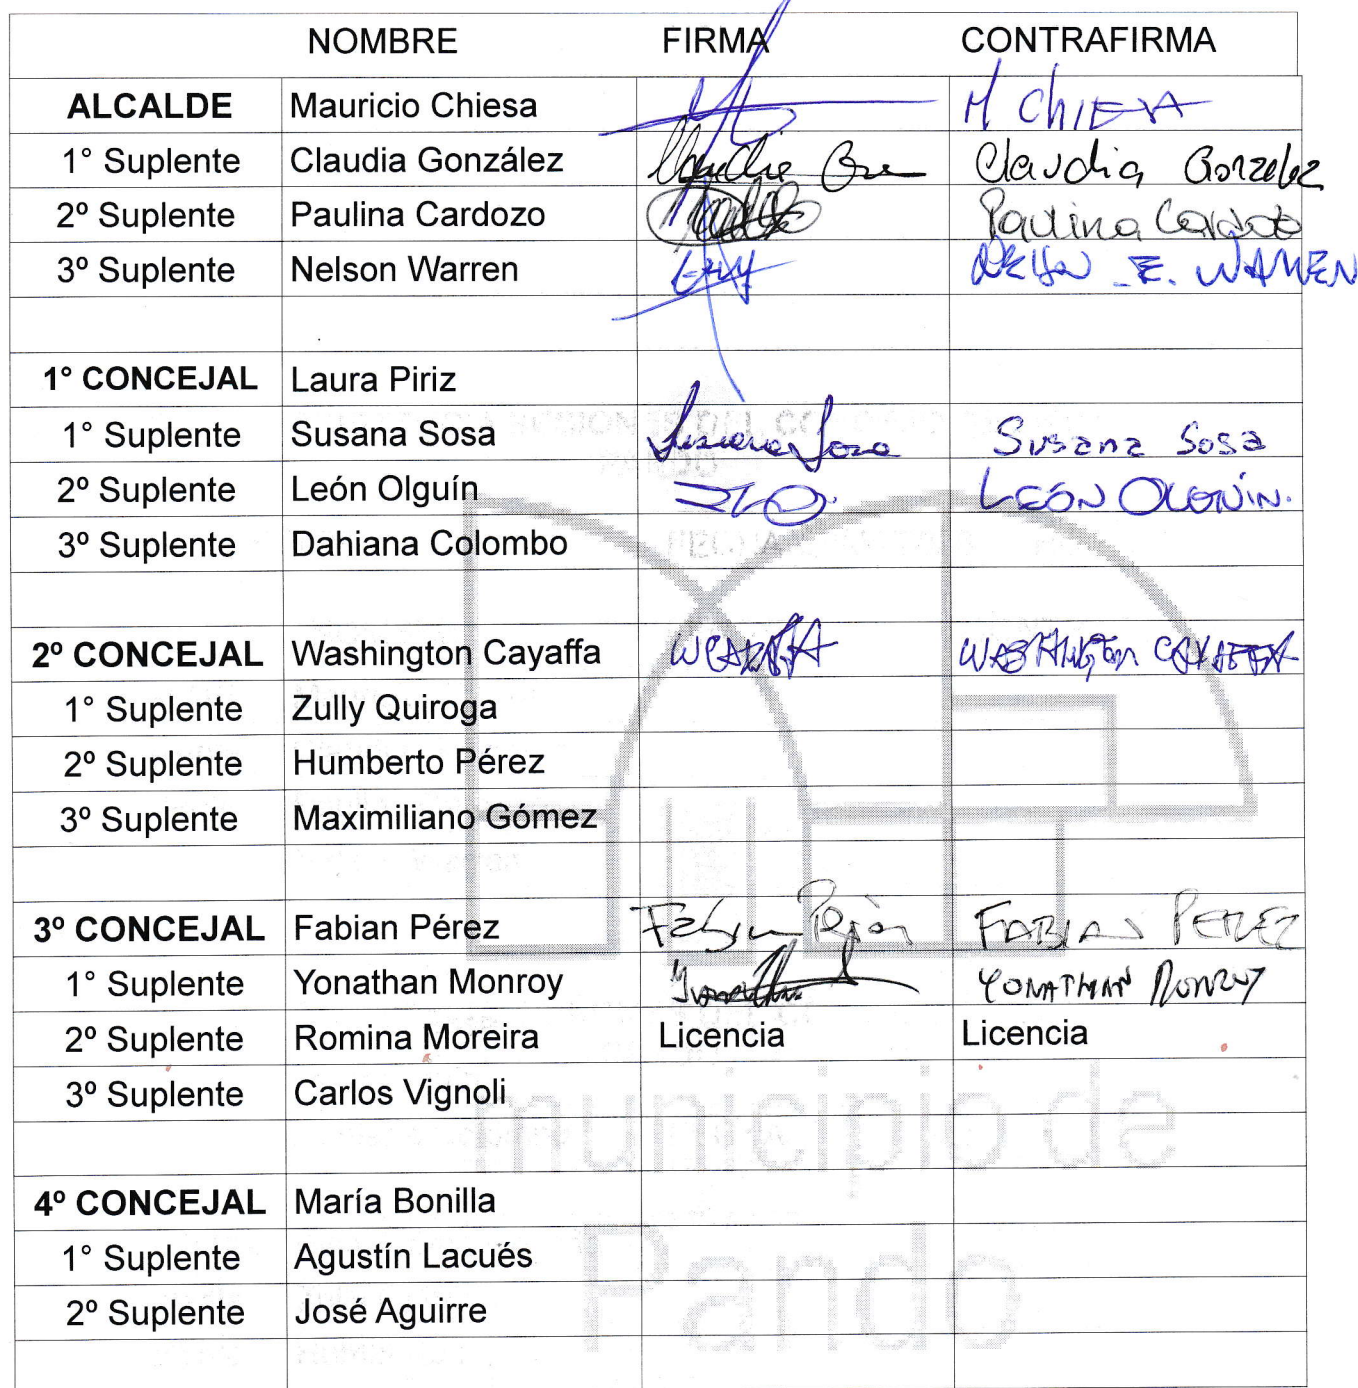 NOMBRE FIRMA CONTRAFIRMA
ALCALDE Mauricio Chiesa M CHIESA
1° Suplente Claudia González Claudia Gonzalez
2º Suplente Paulina Cardozo Paulina Cardozo
3º Suplente Nelson Warren NELSON E. WARREN
1° CONCEJAL Laura Piriz
1° Suplente Susana Sosa Susana Sosa Susana Sosa
2º Suplente León Olguín LEÓN OLGUÍN.
3º Suplente Dahiana Colombo
2º CONCEJAL Washington Cayaffa WASHINGTON CAYAFFA
1° Suplente Zully Quiroga
2º Suplente Humberto Pérez
3º Suplente Maximiliano Gómez
3º CONCEJAL Fabian Pérez Fabian Pérez FABIAN PEREZ
1° Suplente Yonathan Monroy YONATHAN MONROY
2º Suplente Romina Moreira Licencia Licencia
3º Suplente Carlos Vignoli
municipio de
4º CONCEJAL María Bonilla
1° Suplente Agustín Lacués
Pando
2º Suplente José Aguirre